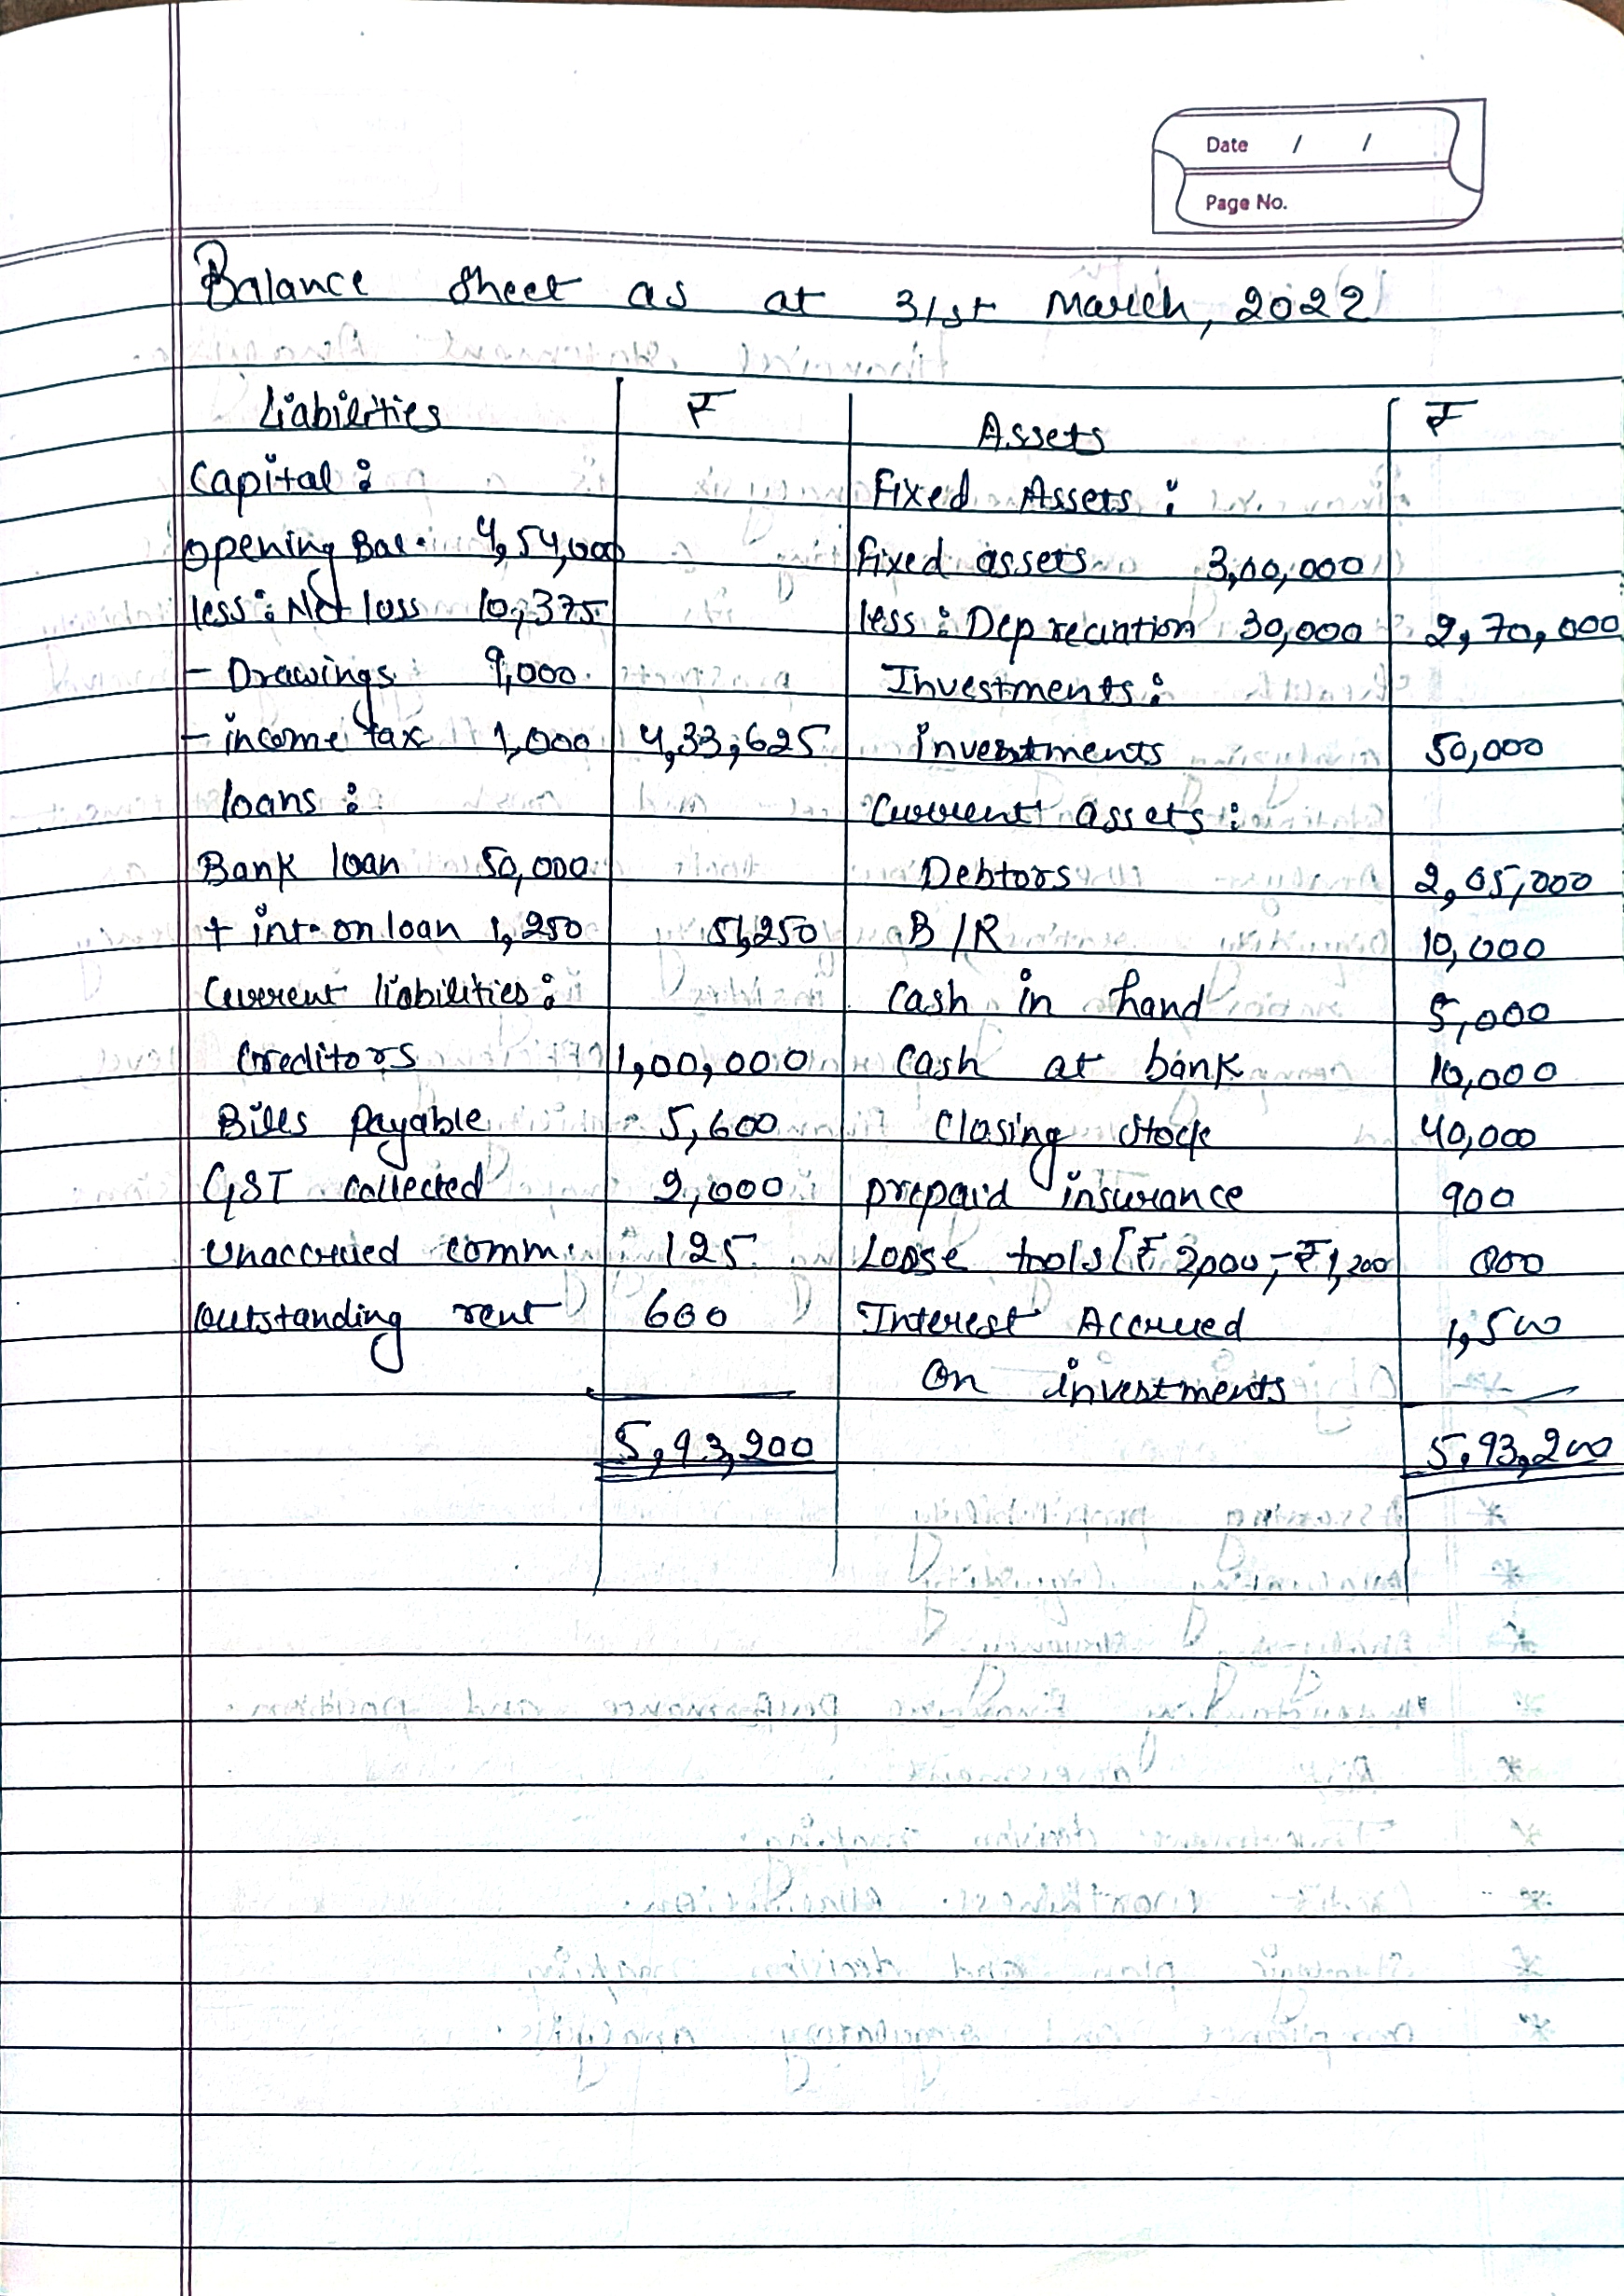 Date / /
Page No.
Balance sheet as at 31st March, 2022
Liabilities ₹ Assets ₹
Capital: Fixed Assets:
opening Bal. 4,54,000 fixed assets 3,00,000
less: Net loss 10,375 less: Depreciation 30,000 2,70,000
- Drawings 9,000 Investments:
- income tax 1,000 4,33,625 investments 50,000
loans: Current assets:
Bank loan 50,000 Debtors 2,05,000
+ int. on loan 1,250 51,250 B/R 10,000
Current liabilities: Cash in hand 5,000
Creditors 1,00,000 Cash at bank 10,000
Bills Payable 5,600 Closing stock 40,000
GST collected 2,000 prepaid insurance 900
Unaccrued comm. 125 Loose tools [₹ 2,000 - ₹ 1,200 800
Outstanding rent 600 Interest Accrued 1,500
On investments
5,93,200 5,93,200